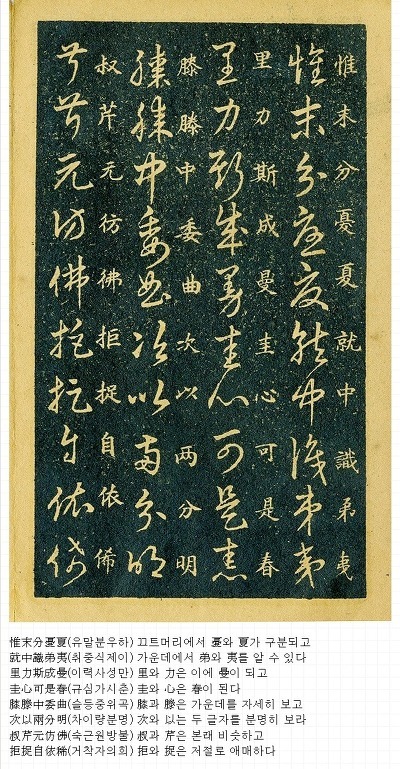 惟末分憂夏就中識弟夷
惟末分憂夏就中識弟夷
里力斯成曼圭心可是春
里力斯成曼圭心可是春
膝滕中委曲次以两分明
膝滕中委曲次以两分明
叔芹元彷彿拒捉自依俙
叔芹元彷彿拒捉自依俙
惟末分憂夏(유말분우하) 끄트머리에서 憂와 夏가 구분되고
就中識弟夷(취중식제이) 가운데에서 弟와 夷를 알 수 있다
里力斯成曼(이력사성만) 里와 力은 이에 曼이 되고
圭心可是春(규심가시춘) 圭와 心은 春이 된다
膝滕中委曲(슬등중위곡) 膝과 滕은 가운데를 자세히 보고
次以兩分明(차이량분명) 次와 以는 두 글자를 분명히 보라
叔芹元仿佛(숙근원방불) 叔과 芹은 본래 비슷하고
拒捉自依稀(거착자의희) 拒와 捉은 저절로 애매하다